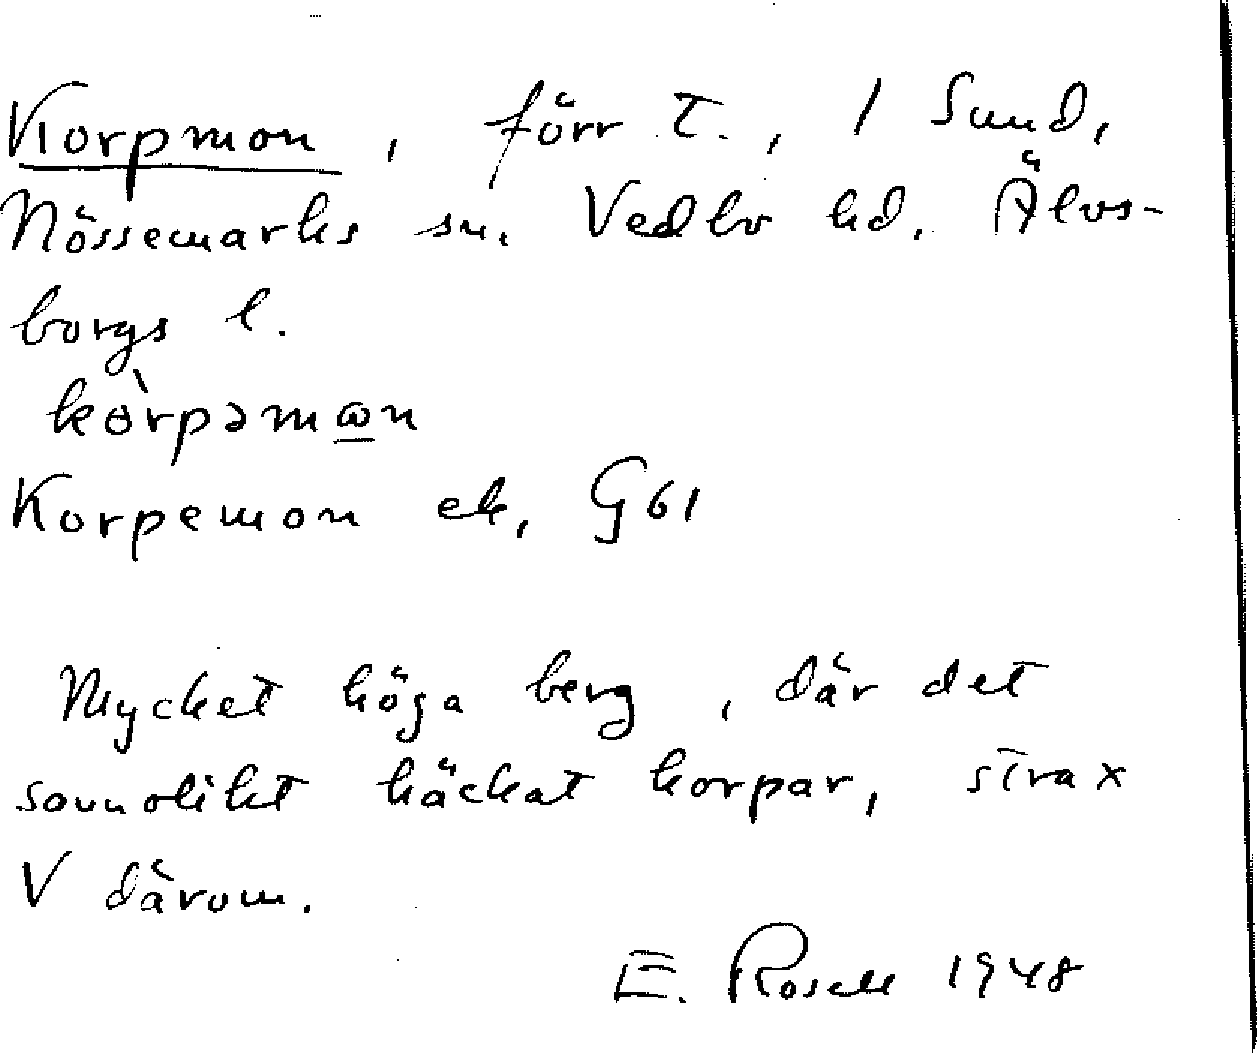 Korpmon, förr t., 1 Sund,
Nössemarks sn. Vedbo hd. Älvs-
borgs l.
kòrpəmωn
Korpemon ek, G61
Mycket höga berg, där det
sannolikt häckat korpar, strax
V därom.
E. Rosell 1948